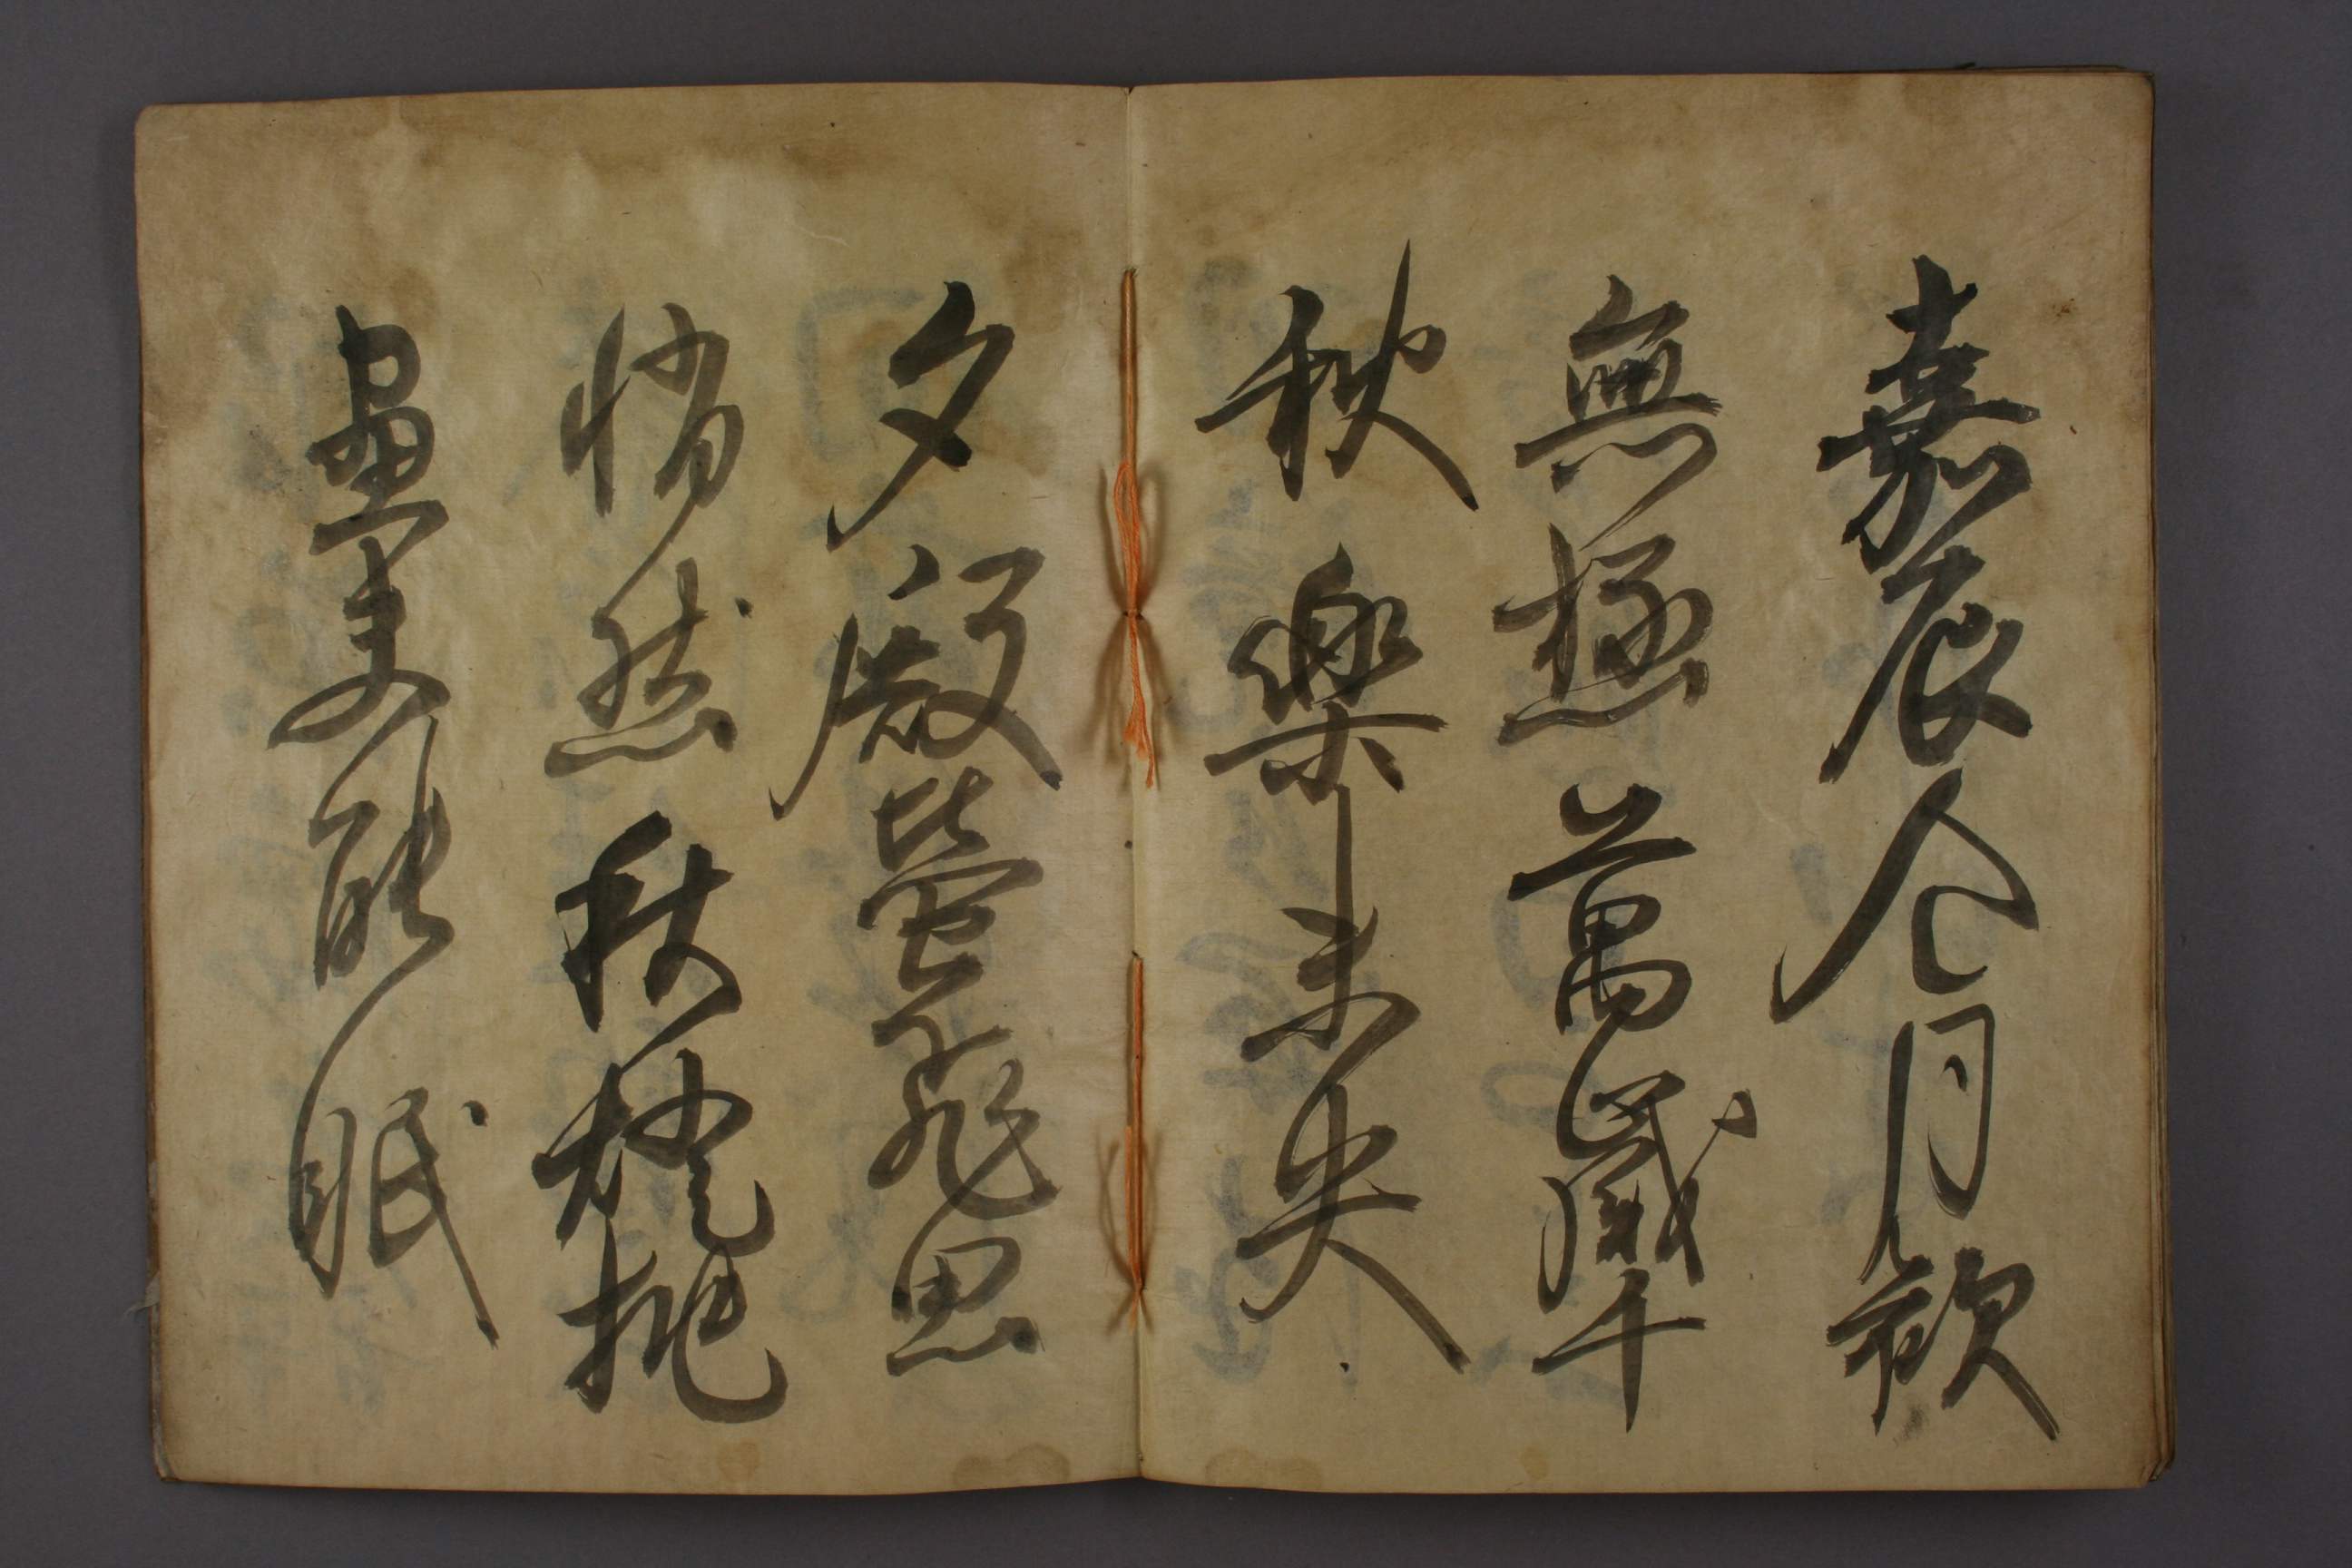 嘉辰令月歓
無極萬歲千
秋樂未央
夕殿螢飛思
悄然秋燈挑
盡未能眠